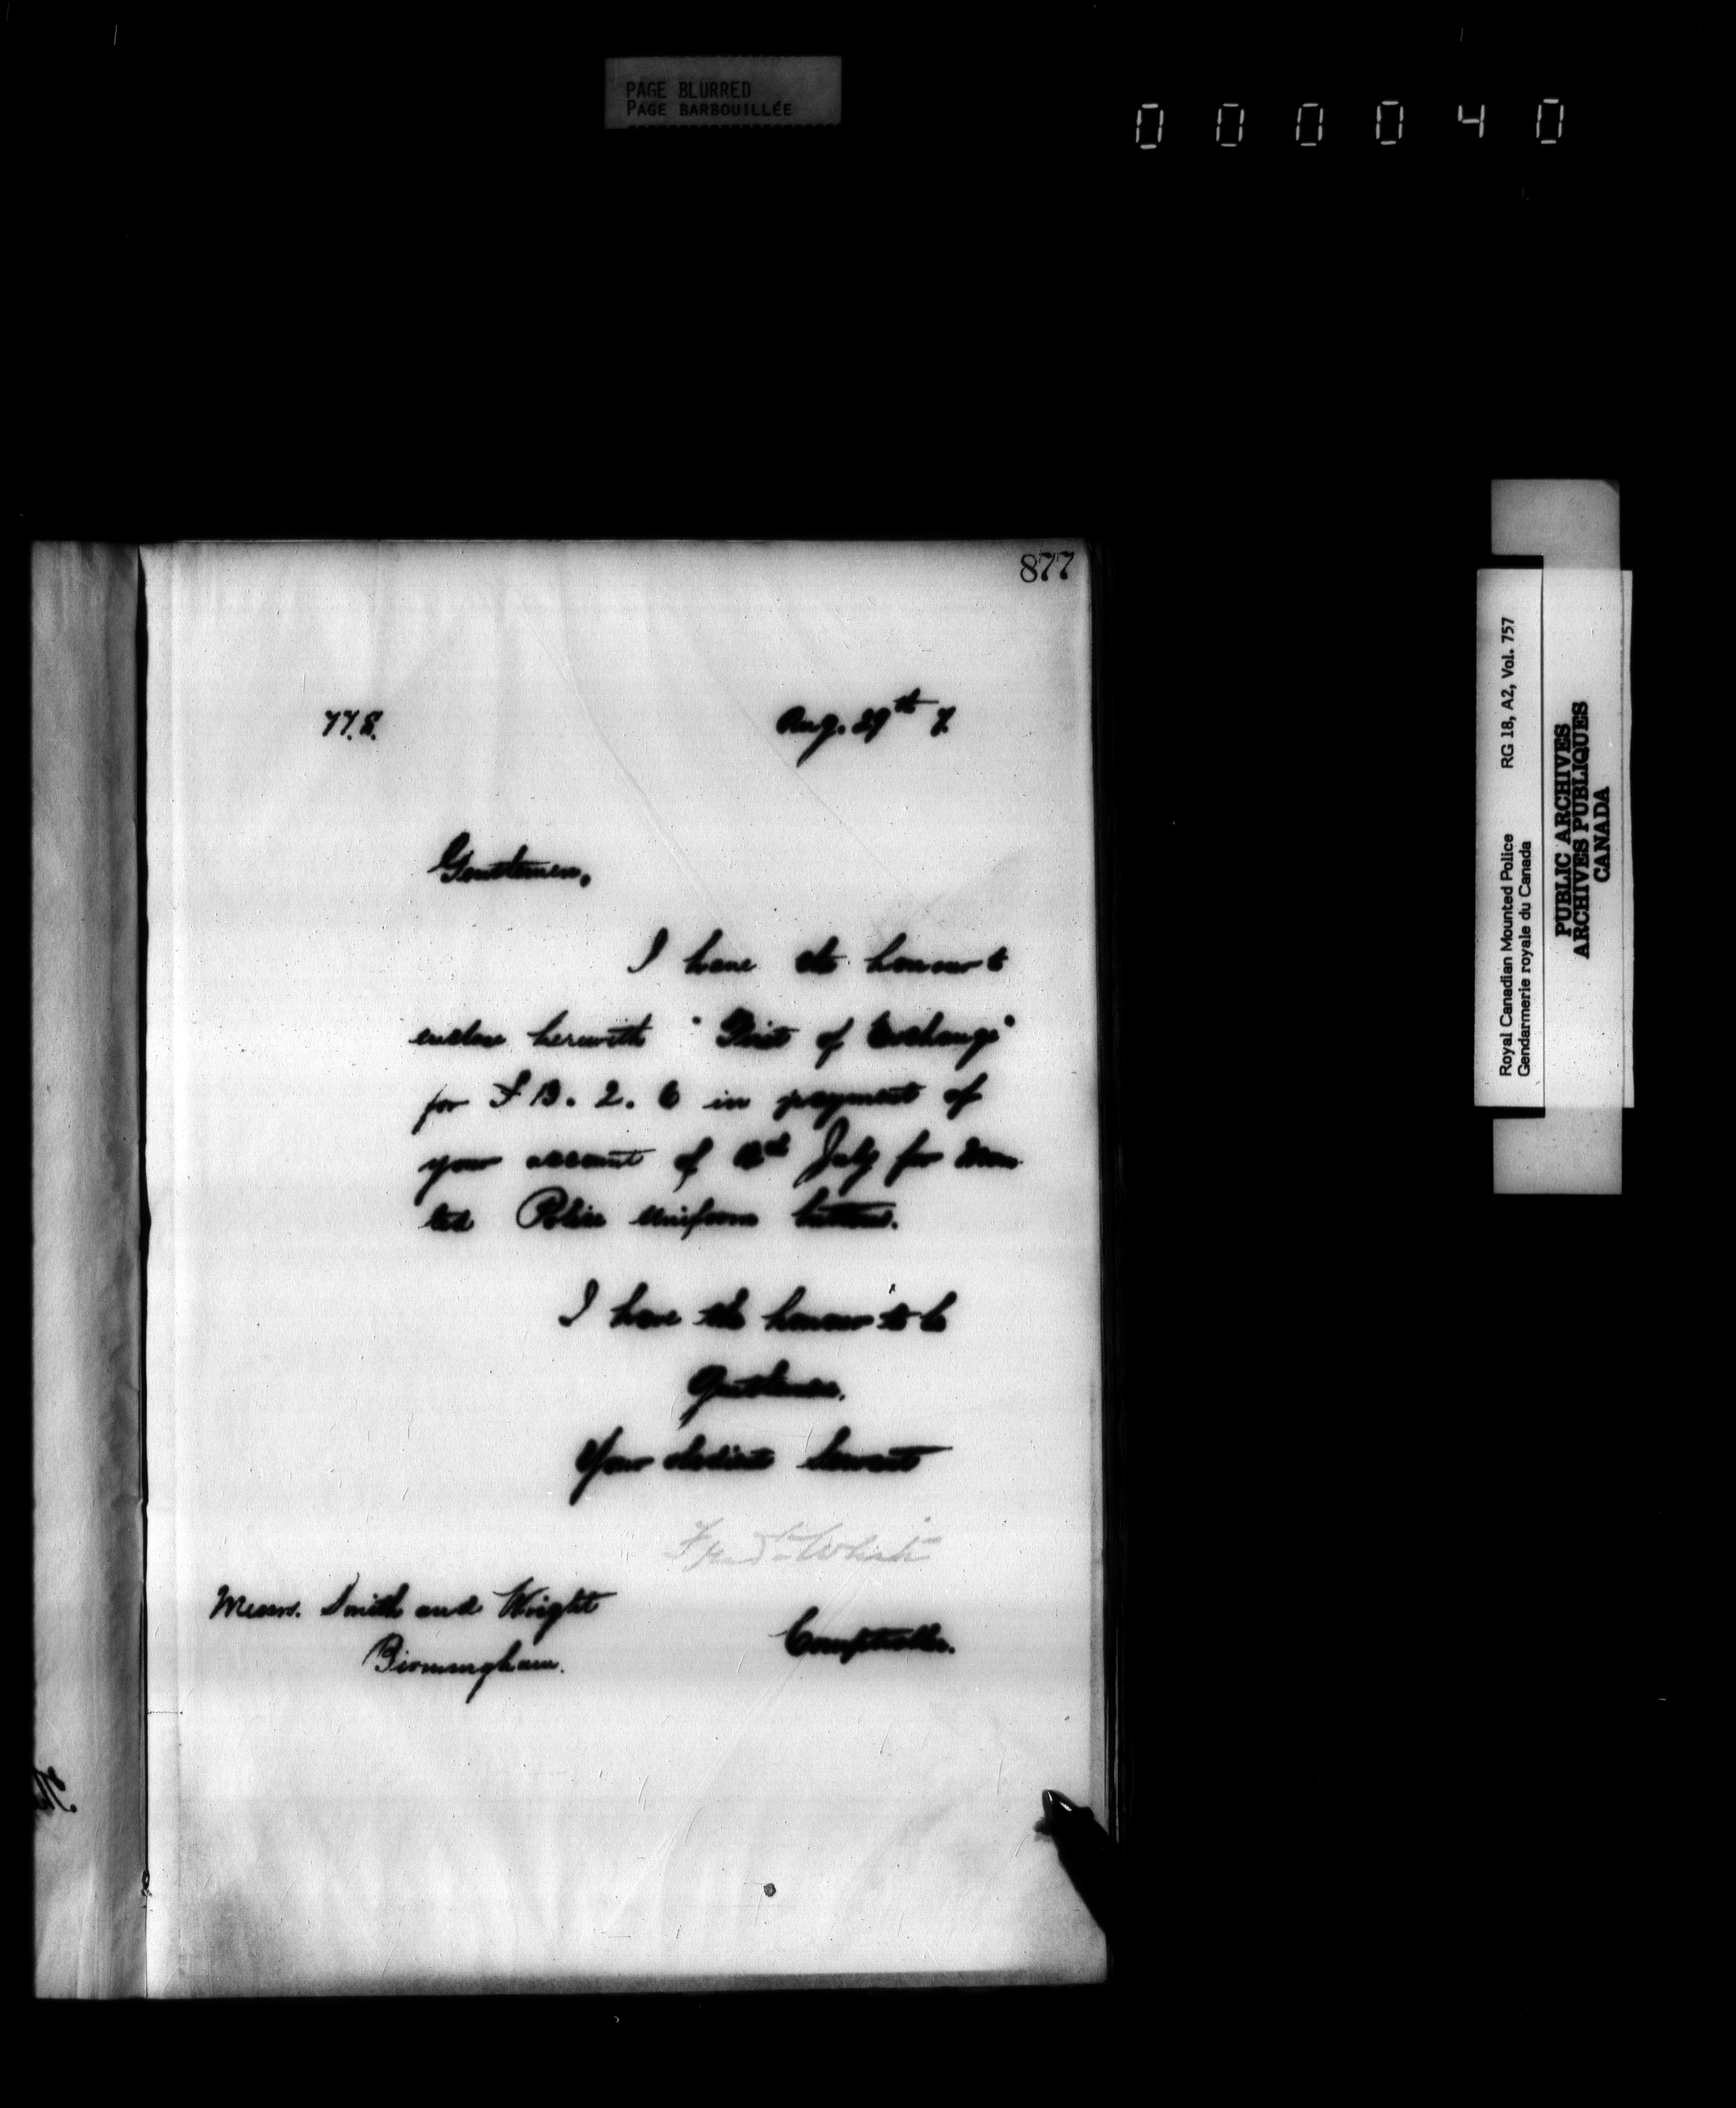 PAGE BLURRED
PAGE BARBOUILLÉE
000040
877
77.8. Aug. 29th 7.
Gentlemen,
I have the honour to
enclose herewith "First of Exchange"
for £ 13. 2. 6 in payment of
your account of July for Moun
ted Police uniform buttons.
I have the honour to be
Gentlemen,
Your obedient Servant
Fred White
Comptroller.
Messrs. Smith and Wright
Birmingham.
Royal Canadian Mounted Police RG 18, A2, Vol. 757
Gendarmerie royale du Canada
PUBLIC ARCHIVES
ARCHIVES PUBLIQUES
CANADA